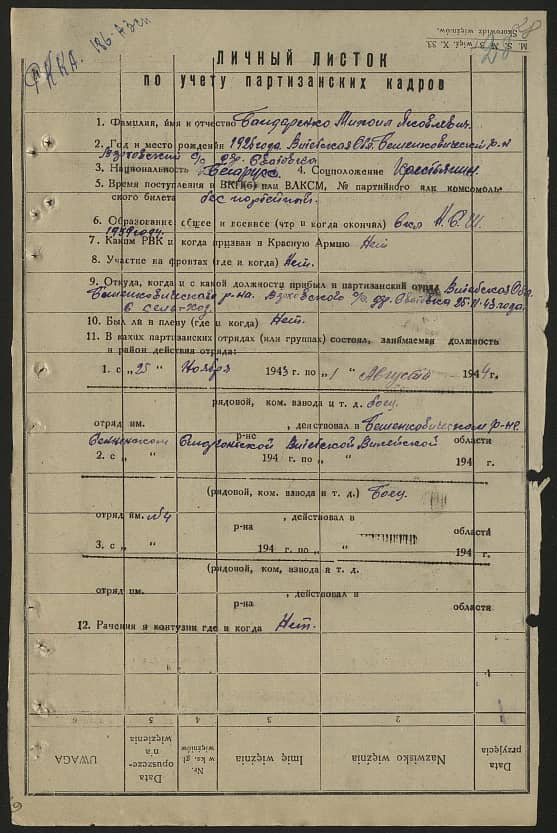 РККА.
28
М. S. № 5/więź. X. 33.
Skorowidz więźniów.
ЛИЧНЫЙ ЛИСТОК
по учету партизанских кадров
1. Фамилия, имя и отчество Бандаренко Михаил Яковлевич.
2. Год и место рождения 1926 года. Витебская обл. Бешенковический р-н
3. Национальность Беларус 4. Соцположение Крестьянин.
5. Время поступления в ВКП(б) или ВЛКСМ, № партийного или комсомоль-
ского билета
6. Образование общее и военное (что и когда окончил)
7. Каким РВК и когда призван в Красную Армию Нет
8. Участие на фронтах (где и когда) Нет.
9. Откуда, когда и с какой должности прибыл в партизанский отряд Витебская Обл.
Бешенковического р-на. 25-11-43 года.
10. Был ли в плену (где и когда) Нет.
11. В каких партизанских отрядах (или группах) состоял, занимаемая должность
и район действия отряда:
1. с „25 “ Ноября 1943 г. по „1 “ Августа 1944 г.
рядовой, ком. взвода и т. д. боец.
отряд им. , действовал в Бешенковическом р-не
р-не Витебской Вилейской области
2. с „ “ 194 г. по „ “ 194 г.
(рядовой, ком. взвода и т. д.) Боец.
отряд им. №4 , действовал в
р-на области
3. с „ “ 194 г. по „ “ 194 г.
(рядовой, ком. взвода и т. д.
отряд им. , действовал в
р-на области
12. Ранения и контузии где и когда Нет.
1 2 3 4 5 6
Data przyjęcia
Nazwisko więźnia
Imię więźnia
Nr. w ks. gł. więźniów
Data opuszcze- n'a więzienia
UWAGA